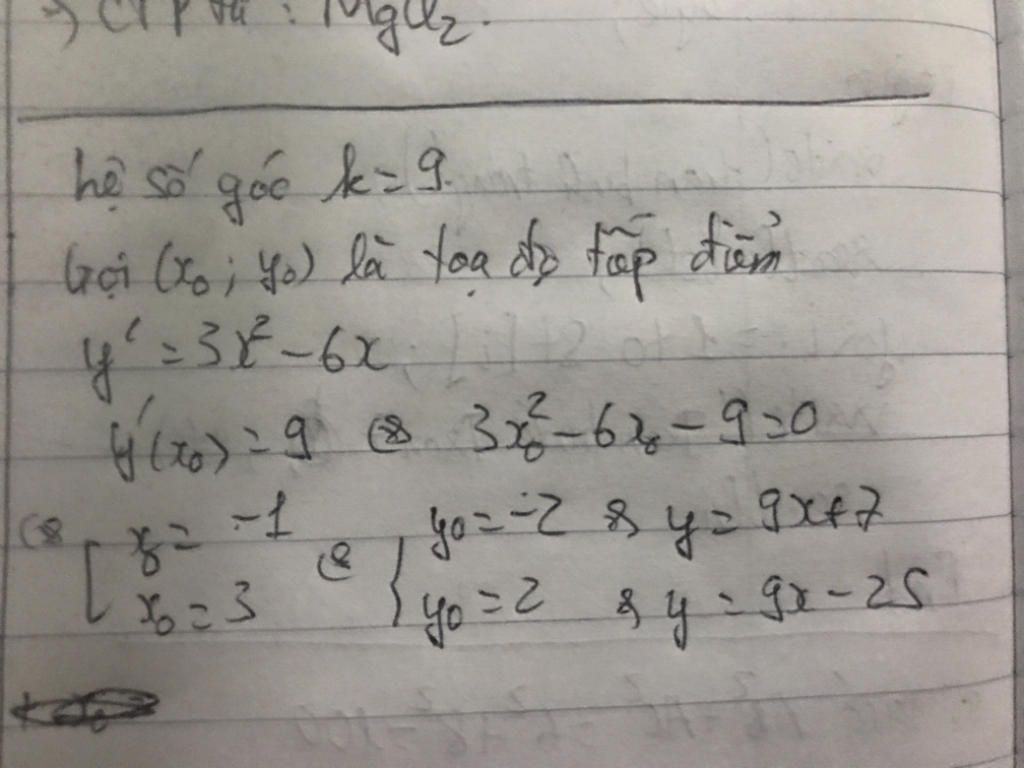 =) CTPT là : MgCl₂.
hệ số góc k = 9.
Gọi (x₀ ; y₀) là tọa độ tiếp điểm
y' = 3x² - 6x
y'(x₀) = 9 ⇔ 3x₀² - 6x₀ - 9 = 0
⇔ [ x₀ = -1 ⇔ { y₀ = -2 ⇒ y = 9x + 7
x₀ = 3 y₀ = 2 ⇒ y = 9x - 25